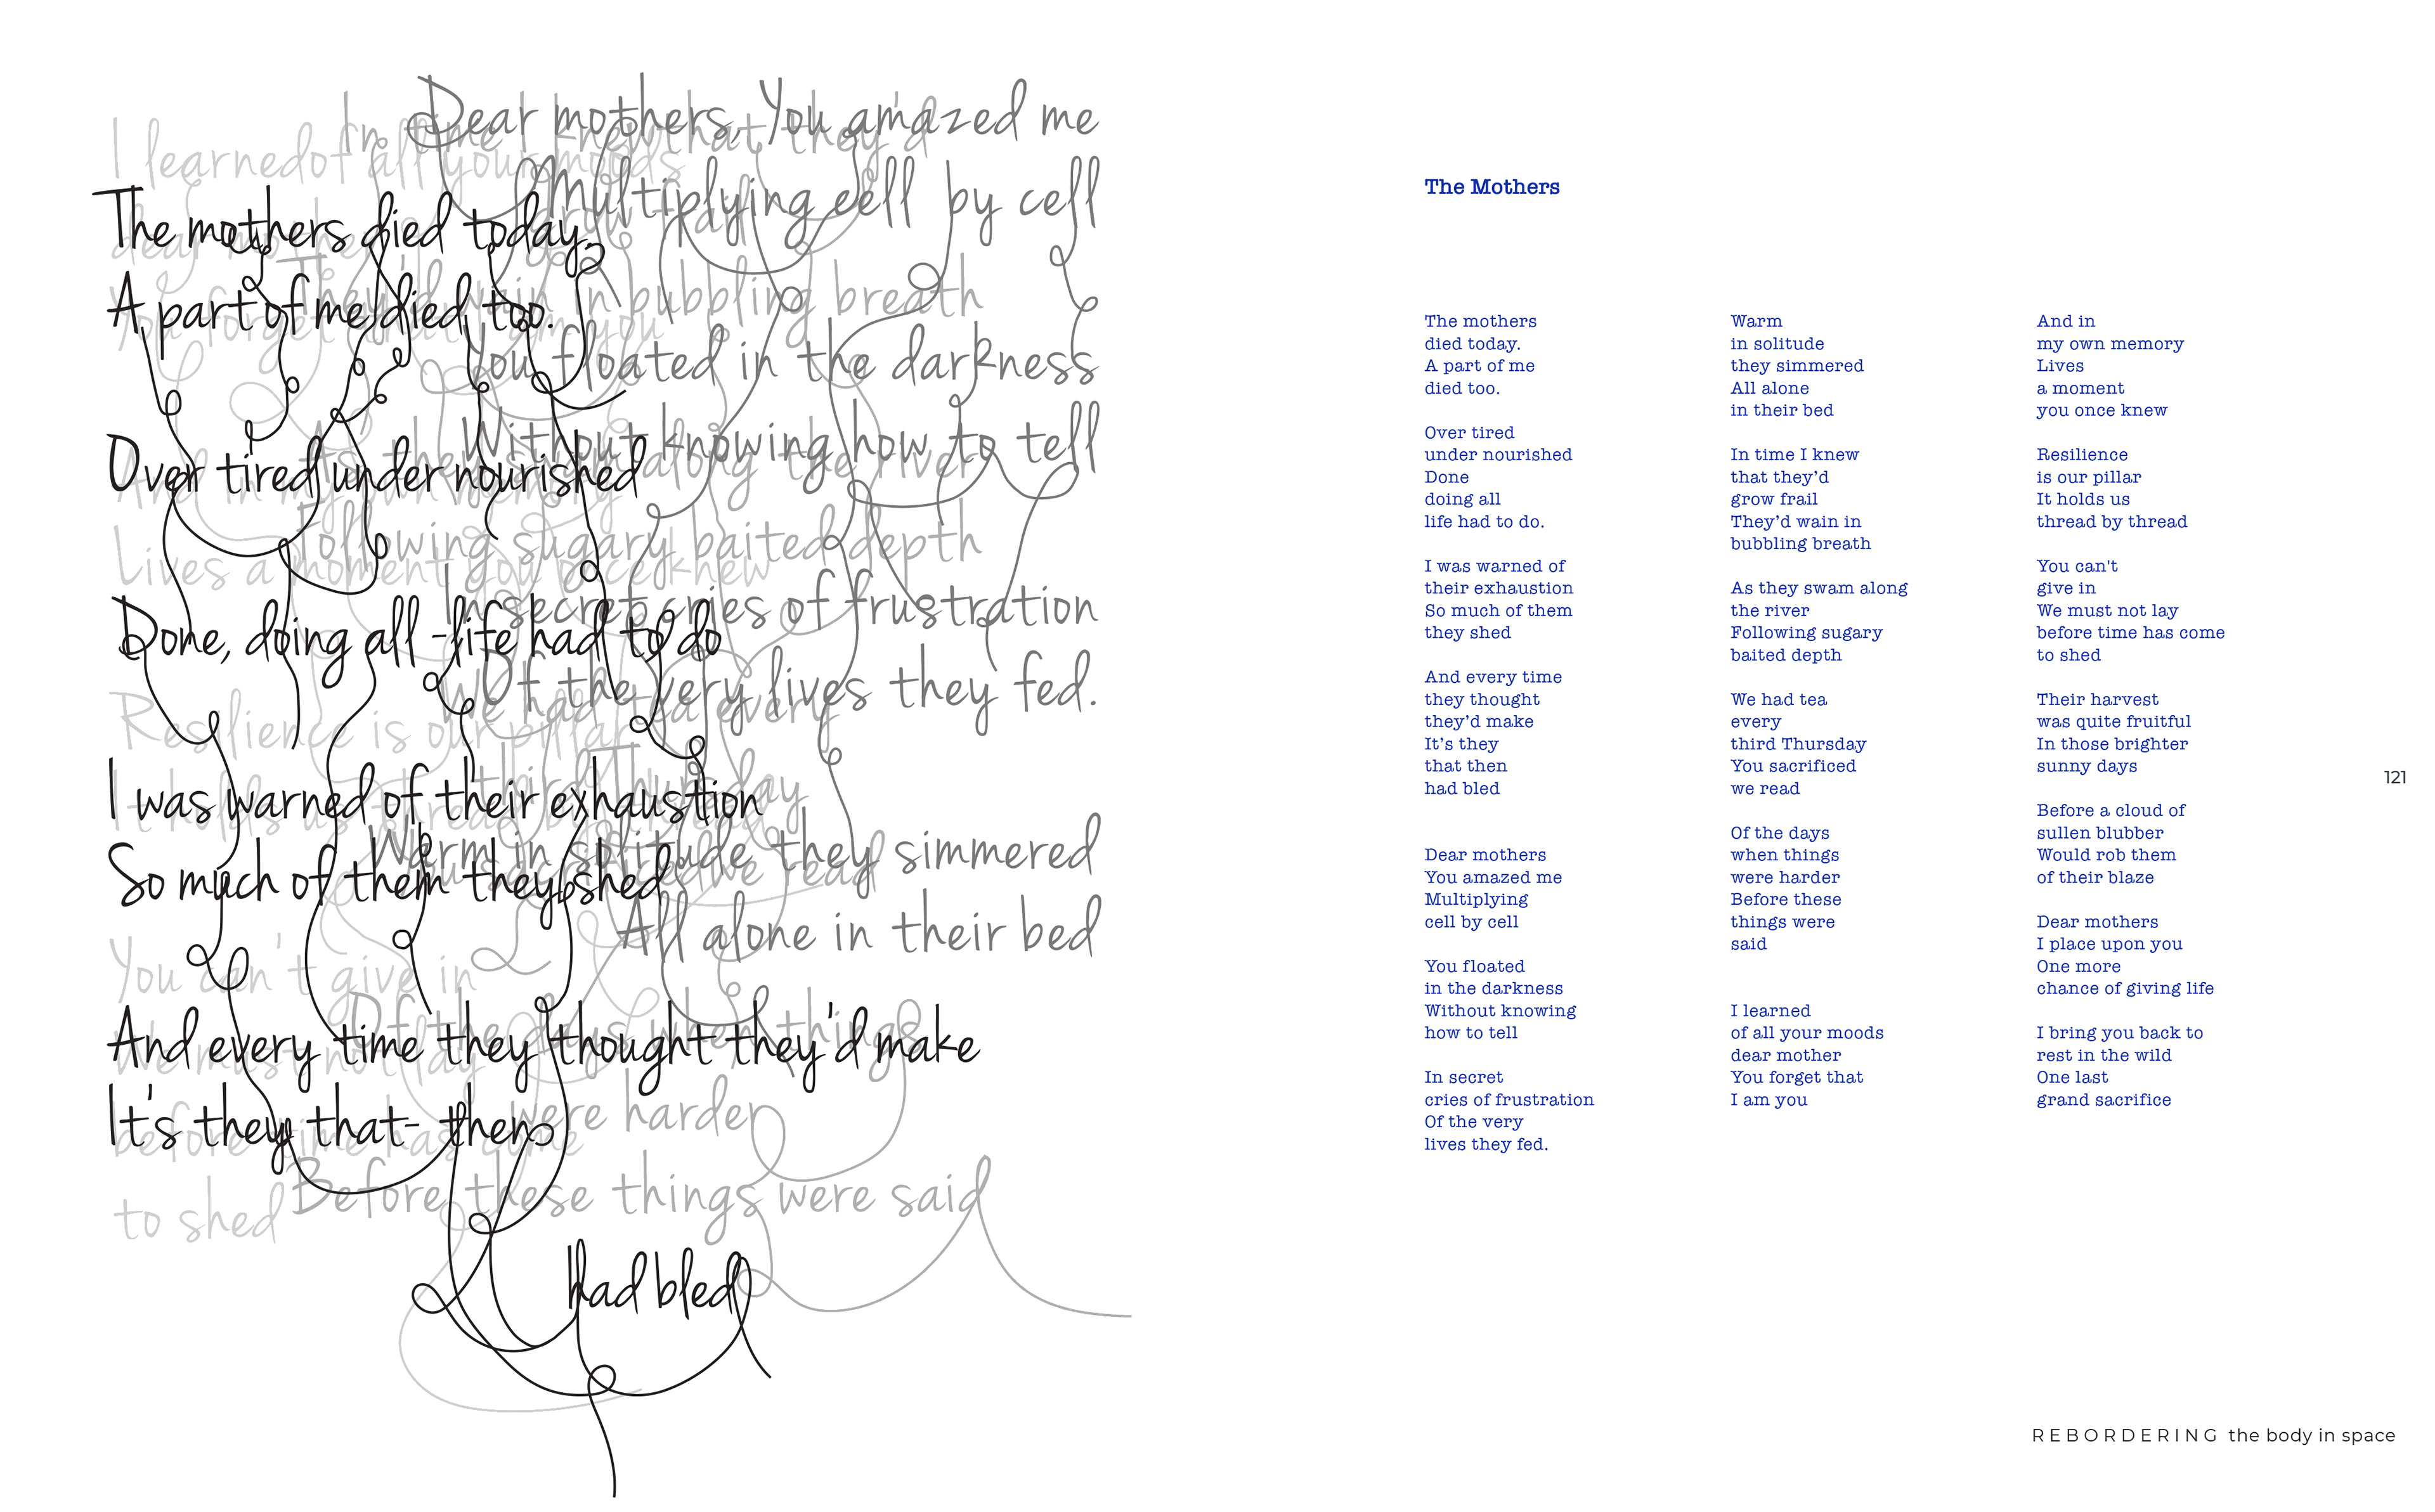 Dear mothers, You amazed me
In time I knew that they'd
I learned of all your moods
Multiplying cell by cell
grow frail
The mothers died today.
dear mother
They'd wain in bubbling breath
A part of me died too.
You forget that I am you
You floated in the darkness
Without knowing how to tell
As they swam along the river
Over tired under nourished
And in my own memory
Following sugary baited depth
Lives a moment you once knew
In secret cries of frustration
Done, doing all - life had to do
Of the very lives they fed.
We had tea every
Resilience is our pillar
third Thursday
I was warned of their exhaustion
It holds us thread by thread
Warm in solitude they simmered
You sacrificed we read
So much of them they shed
All alone in their bed
You can't give in
Of the days when things
And every time they thought they'd make
We must not lay
were harder
It's they that - then
before time has come
Before these things were said
to shed
had bled
The Mothers
The mothers
died today.
A part of me
died too.
Over tired
under nourished
Done
doing all
life had to do.
I was warned of
their exhaustion
So much of them
they shed
And every time
they thought
they’d make
It’s they
that then
had bled
Dear mothers
You amazed me
Multiplying
cell by cell
You floated
in the darkness
Without knowing
how to tell
In secret
cries of frustration
Of the very
lives they fed.
Warm
in solitude
they simmered
All alone
in their bed
In time I knew
that they’d
grow frail
They’d wain in
bubbling breath
As they swam along
the river
Following sugary
baited depth
We had tea
every
third Thursday
You sacrificed
we read
Of the days
when things
were harder
Before these
things were
said
I learned
of all your moods
dear mother
You forget that
I am you
And in
my own memory
Lives
a moment
you once knew
Resilience
is our pillar
It holds us
thread by thread
You can't
give in
We must not lay
before time has come
to shed
Their harvest
was quite fruitful
In those brighter
sunny days
Before a cloud of
sullen blubber
Would rob them
of their blaze
Dear mothers
I place upon you
One more
chance of giving life
I bring you back to
rest in the wild
One last
grand sacrifice
121
REBORDERING the body in space